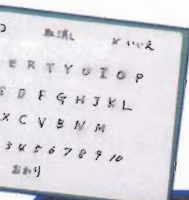 取消し いいえ
E R T Y U I O P
D F G H J K L
X C V B N M
3 4 5 6 7 8 9 10
おわり